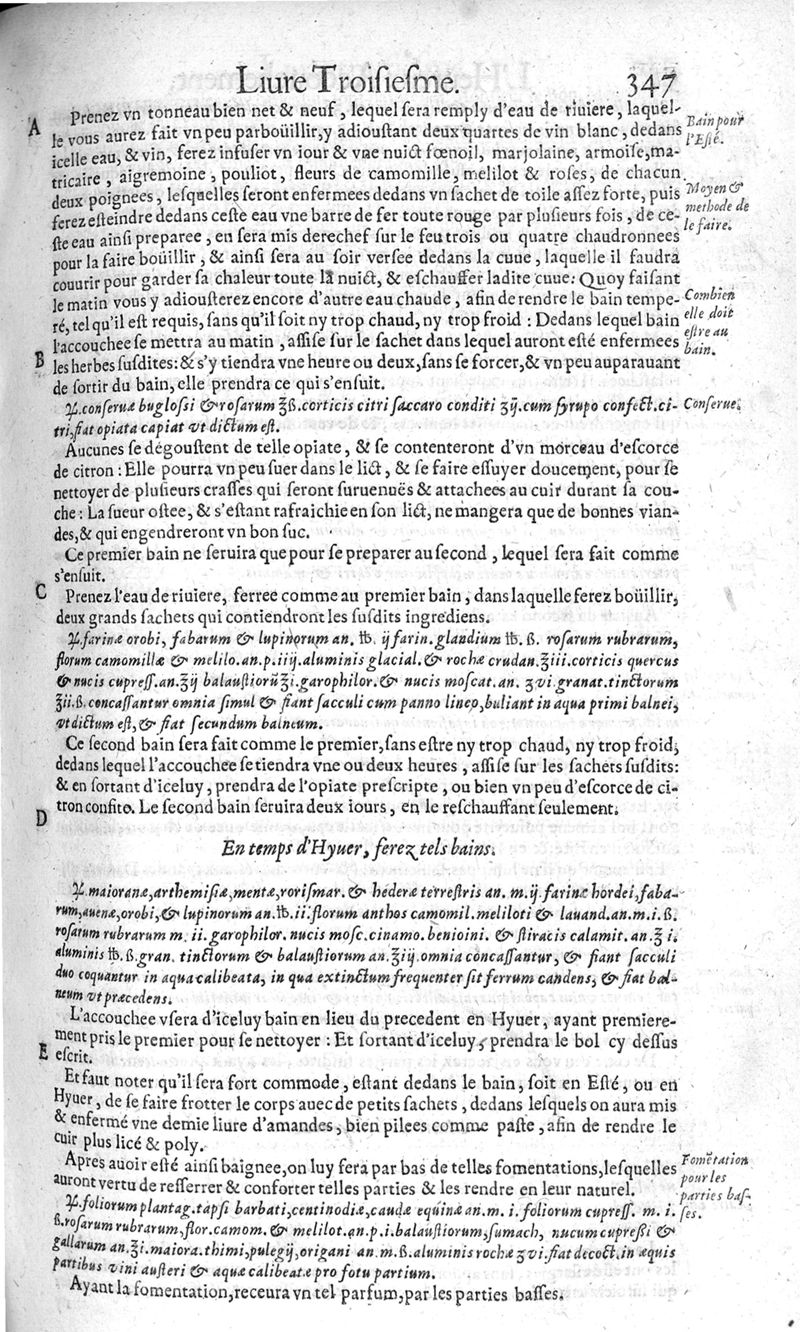 Liure Troisiesme. 347
A Prenez vn tonneau bien net & neuf, lequel sera remply d'eau de riuiere, laquel-
le vous aurez fait vn peu parboüillir, y adioustant deux quartes de vin blanc, dedans
icelle eau, & vin, ferez infuser vn iour & vne nuict fœnoil, marjolaine, armoise, ma-
tricaire, aigremoine, pouliot, fleurs de camomille, melilot & roses, de chacun
deux poignees, lesquelles seront enfermees dedans vn sachet de toile assez forte, puis
ferez esteindre dedans ceste eau vne barre de fer toute rouge par plusieurs fois, de ce-
ste eau ainsi preparee, en sera mis derechef sur le feu trois ou quatre chaudronnees
pour la faire boüillir, & ainsi sera au soir versee dedans la cuue, laquelle il faudra
couurir pour garder sa chaleur toute la nuict, & eschauffer ladite cuue: Quoy faisant
le matin vous y adiousterez encore d'autre eau chaude, afin de rendre le bain tempe-
ré, tel qu'il est requis, sans qu'il soit ny trop chaud, ny trop froid : Dedans lequel bain
l'accouchee se mettra au matin, assise sur le sachet dans lequel auront esté enfermees
B les herbes susdites: & s'y tiendra vne heure ou deux, sans se forcer, & vn peu auparauant
de sortir du bain, elle prendra ce qui s'ensuit.
Bain pour
l'Esté.
Moyen &
methode de
le faire.
Combien
elle doit
estre au
bain.
♃. conseruæ buglossi & rosarum ʒß. corticis citri saccaro conditi ʒij. cum syrupo confect. ci-
tri, fiat opiata capiat vt dictum est.
Conserue.
Aucunes se dégoustent de telle opiate, & se contenteront d'vn morceau d'escorce
de citron : Elle pourra vn peu suer dans le lict, & se faire essuyer doucement, pour se
nettoyer de plusieurs crasses qui seront suruenuës & attachees au cuir durant sa cou-
che : La sueur ostee, & s'estant rafraichie en son lict, ne mangera que de bonnes vian-
des, & qui engendreront vn bon suc.
Ce premier bain ne seruira que pour se preparer au second, lequel sera fait comme
s'ensuit.
C Prenez l'eau de riuiere, ferree comme au premier bain, dans laquelle ferez boüillir,
deux grands sachets qui contiendront les susdits ingrediens.
♃. farinæ orobi, fabarum & lupinorum an. ℔. ij farin. glandium ℔. ß. rosarum rubrarum,
florum camomillæ & melilo. an. p. iiij. aluminis glacial. & rochæ crud an. ℥iii. corticis quercus
& nucis cupress. an. ℥ij balaustiorū ℥i. garophilor. & nucis moscat. an. ʒvi. granat. tinctorum
℥ii. ß. concassantur omnia simul & fiant sacculi cum panno lineo, buliant in aqua primi balnei,
vt dictum est, & fiat secundum balneum.
Ce second bain sera fait comme le premier, sans estre ny trop chaud, ny trop froid,
dedans lequel l'accouchee se tiendra vne ou deux heures, assise sur les sachets susdits:
& en sortant d'iceluy, prendra de l'opiate prescripte, ou bien vn peu d'escorce de ci-
tron confite. Le second bain seruira deux iours, en le reschauffant seulement.
D
En temps d'Hyuer, ferez tels bains.
♃. maioranæ, arthemisiæ, mentæ, rorismar. & hederæ terrestris an. m. ij. farinæ hordei, faba-
rum, auenæ, orobi, & lupinorum an. ℔. ii. florum anthos camomil. meliloti & lauand. an. m. i. ß.
rosarum rubrarum m. ii. garophilor. nucis mosc. cinamo. benioini. & stiracis calamit. an. ℥ i.
aluminis ℔. ß. gran. tinctorum & balaustiorum an. ℥iij. omnia concassantur, & fiant sacculi
duo coquantur in aqua calibeata, in qua extinctum frequenter sit ferrum candens, & fiat bal-
neum vt præcedens.
L'accouchee vsera d'iceluy bain en lieu du precedent en Hyuer, ayant premiere-
ment pris le premier pour se nettoyer : Et sortant d'iceluy, prendra le bol cy dessus
E escrit.
Et faut noter qu'il sera fort commode, estant dedans le bain, soit en Esté, ou en
Hyuer, de se faire frotter le corps auec de petits sachets, dedans lesquels on aura mis
& enfermé vne demie liure d'amandes, bien pilees comme paste, afin de rendre le
cuir plus licé & poly.
Apres auoir esté ainsi baignee, on luy fera par bas de telles fomentations, lesquelles
auront vertu de resserrer & conforter telles parties & les rendre en leur naturel.
Fomētation
pour les
parties bas-
ses.
♃. foliorum plantag. tapsi barbati, centinodiæ, caudæ equinæ an. m. i. foliorum cupress. m. i.
ß. rosarum rubrarum, flor. camom. & melilot. an. p. i. balaustiorum, sumach, nucum cupressi &
gallarum an. ℥i. maiora. thimi, pulegij, origani an. m. ß. aluminis rochæ ʒvi. fiat decoct. in æquis
partibus vini austeri & aquæ calibeatæ pro fotu partium.
Ayant la fomentation, receura vn tel parfum, par les parties basses.